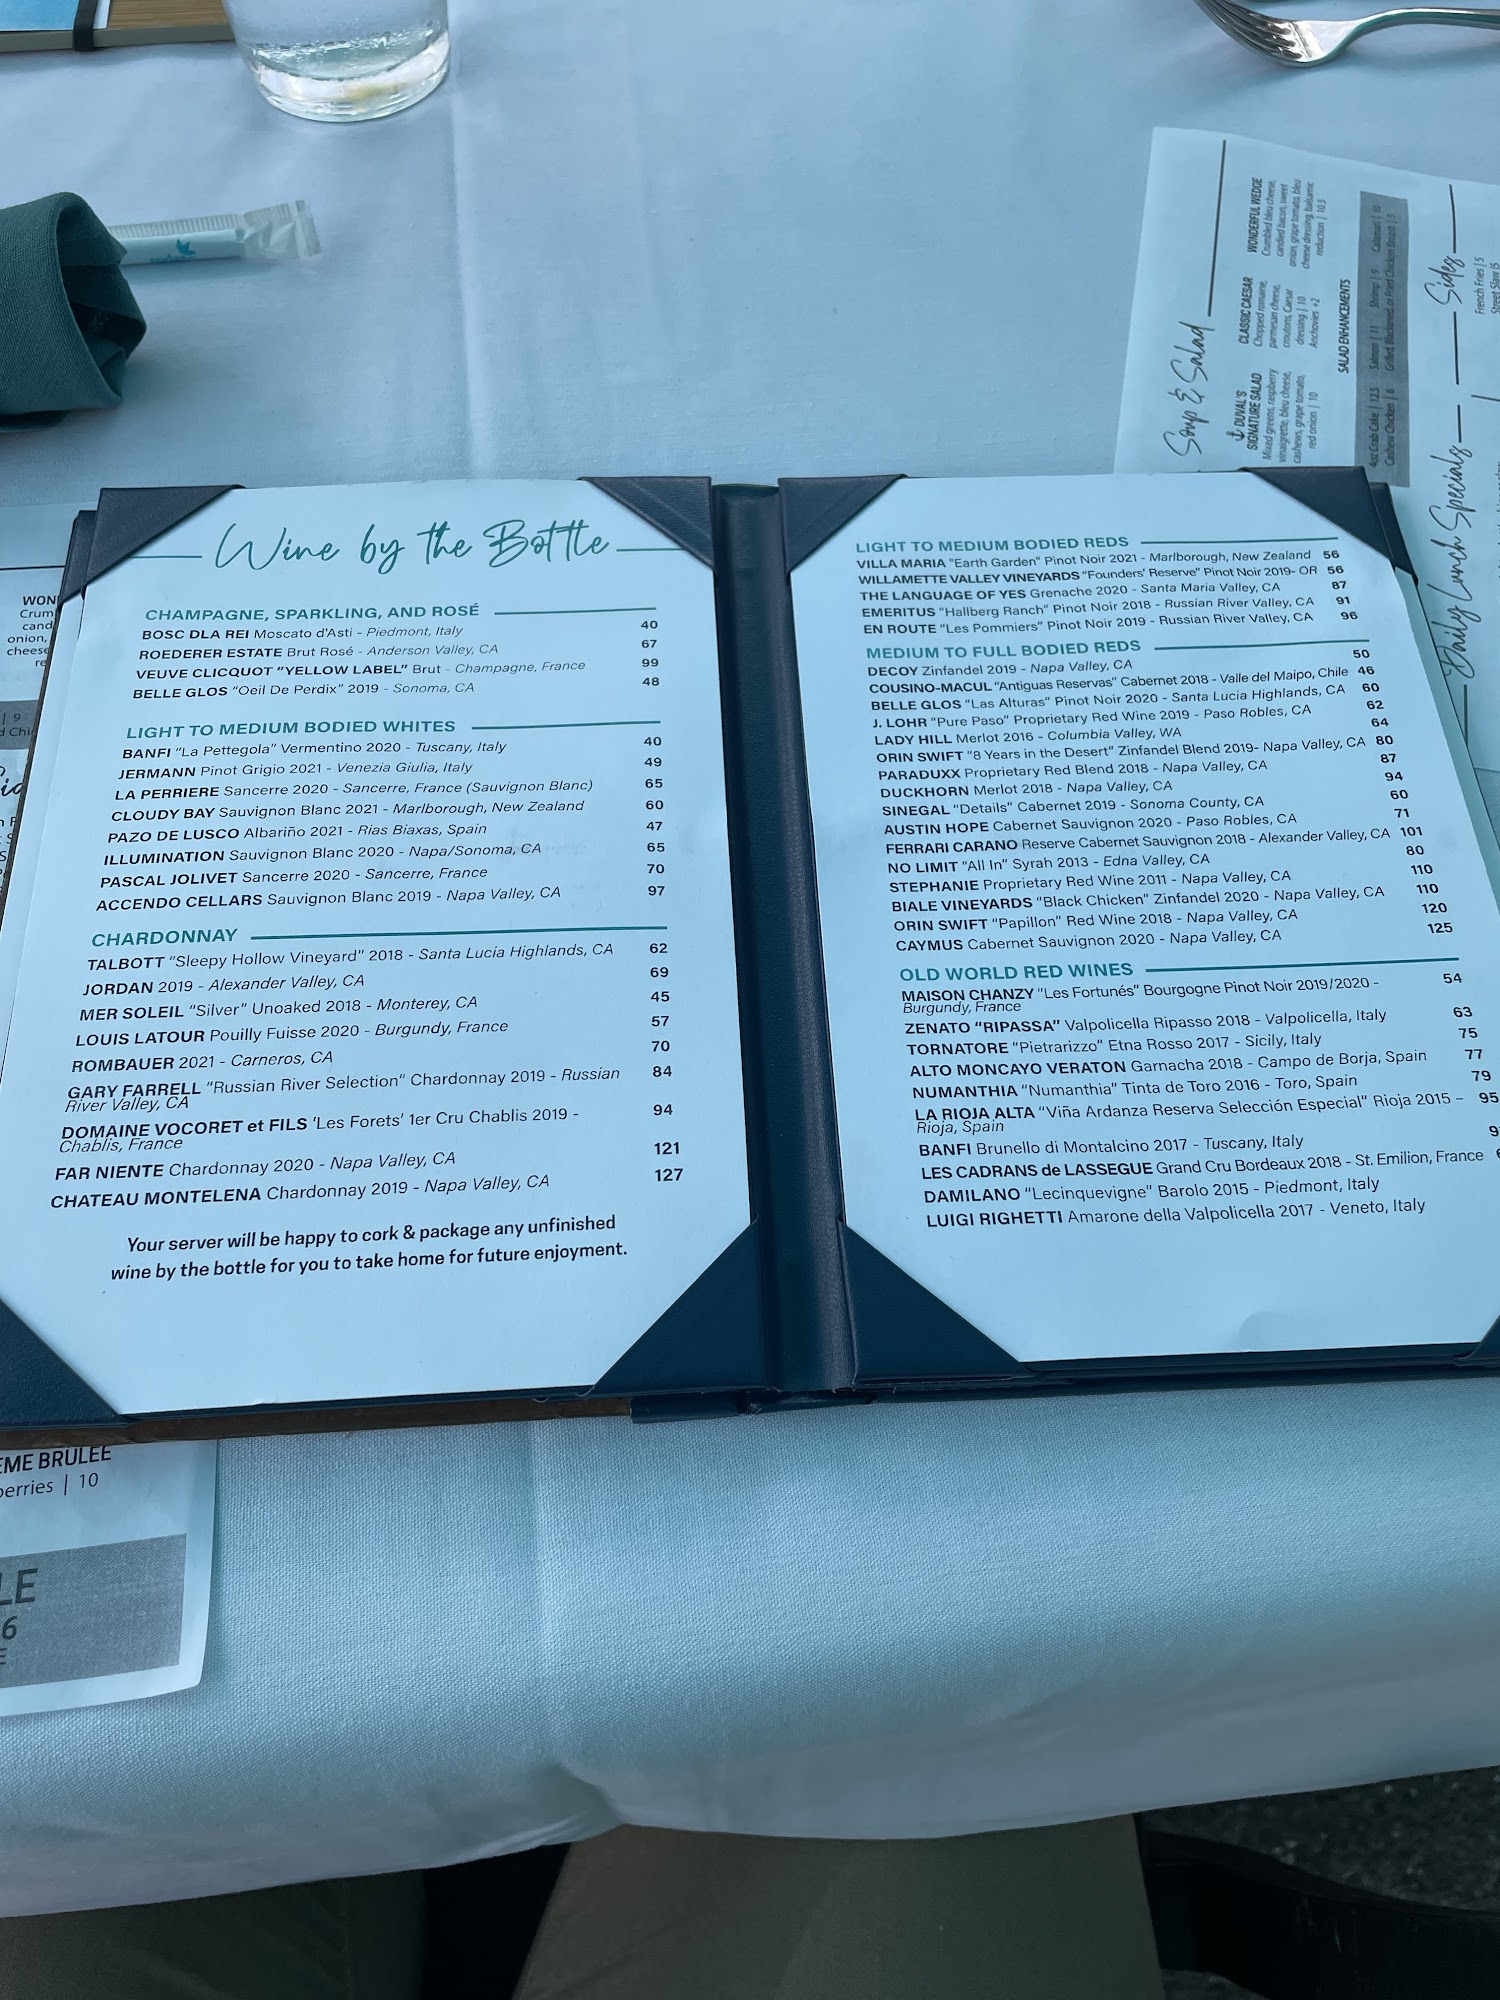 Wine by the Bottle
CHAMPAGNE, SPARKLING, AND ROSÉ
BOSC DLA REI Moscato d'Asti - Piedmont, Italy 40
ROEDERER ESTATE Brut Rosé - Anderson Valley, CA 67
VEUVE CLICQUOT "YELLOW LABEL" Brut - Champagne, France 99
BELLE GLOS "Oeil De Perdix" 2019 - Sonoma, CA 48
LIGHT TO MEDIUM BODIED WHITES
BANFI "La Pettegola" Vermentino 2020 - Tuscany, Italy 40
JERMANN Pinot Grigio 2021 - Venezia Giulia, Italy 49
LA PERRIERE Sancerre 2020 - Sancerre, France (Sauvignon Blanc) 65
CLOUDY BAY Sauvignon Blanc 2021 - Marlborough, New Zealand 60
PAZO DE LUSCO Albariño 2021 - Rias Biaxas, Spain 47
ILLUMINATION Sauvignon Blanc 2020 - Napa/Sonoma, CA 65
PASCAL JOLIVET Sancerre 2020 - Sancerre, France 70
ACCENDO CELLARS Sauvignon Blanc 2019 - Napa Valley, CA 97
CHARDONNAY
TALBOTT "Sleepy Hollow Vineyard" 2018 - Santa Lucia Highlands, CA 62
JORDAN 2019 - Alexander Valley, CA 69
MER SOLEIL "Silver" Unoaked 2018 - Monterey, CA 45
LOUIS LATOUR Pouilly Fuisse 2020 - Burgundy, France 57
ROMBAUER 2021 - Carneros, CA 70
GARY FARRELL "Russian River Selection" Chardonnay 2019 - Russian 84
River Valley, CA
DOMAINE VOCORET et FILS 'Les Forets' 1er Cru Chablis 2019 - 94
Chablis, France
FAR NIENTE Chardonnay 2020 - Napa Valley, CA 121
CHATEAU MONTELENA Chardonnay 2019 - Napa Valley, CA 127
Your server will be happy to cork & package any unfinished
wine by the bottle for you to take home for future enjoyment.
LIGHT TO MEDIUM BODIED REDS
VILLA MARIA "Earth Garden" Pinot Noir 2021 - Marlborough, New Zealand 56
WILLAMETTE VALLEY VINEYARDS "Founders' Reserve" Pinot Noir 2019- OR 56
THE LANGUAGE OF YES Grenache 2020 - Santa Maria Valley, CA 87
EMERITUS "Hallberg Ranch" Pinot Noir 2018 - Russian River Valley, CA 91
EN ROUTE "Les Pommiers" Pinot Noir 2019 - Russian River Valley, CA 96
MEDIUM TO FULL BODIED REDS
DECOY Zinfandel 2019 - Napa Valley, CA 50
COUSINO-MACUL "Antiguas Reservas" Cabernet 2018 - Valle del Maipo, Chile 46
BELLE GLOS "Las Alturas" Pinot Noir 2020 - Santa Lucia Highlands, CA 60
J. LOHR "Pure Paso" Proprietary Red Wine 2019 - Paso Robles, CA 62
LADY HILL Merlot 2016 - Columbia Valley, WA 64
ORIN SWIFT "8 Years in the Desert" Zinfandel Blend 2019- Napa Valley, CA 80
PARADUXX Proprietary Red Blend 2018 - Napa Valley, CA 87
DUCKHORN Merlot 2018 - Napa Valley, CA 94
SINEGAL "Details" Cabernet 2019 - Sonoma County, CA 60
AUSTIN HOPE Cabernet Sauvignon 2020 - Paso Robles, CA 71
FERRARI CARANO Reserve Cabernet Sauvignon 2018 - Alexander Valley, CA 101
NO LIMIT "All In" Syrah 2013 - Edna Valley, CA 80
STEPHANIE Proprietary Red Wine 2011 - Napa Valley, CA 110
BIALE VINEYARDS "Black Chicken" Zinfandel 2020 - Napa Valley, CA 110
ORIN SWIFT "Papillon" Red Wine 2018 - Napa Valley, CA 120
CAYMUS Cabernet Sauvignon 2020 - Napa Valley, CA 125
OLD WORLD RED WINES
MAISON CHANZY "Les Fortunés" Bourgogne Pinot Noir 2019/2020 - 54
Burgundy, France
ZENATO "RIPASSA" Valpolicella Ripasso 2018 - Valpolicella, Italy 63
TORNATORE "Pietrarizzo" Etna Rosso 2017 - Sicily, Italy 75
ALTO MONCAYO VERATON Garnacha 2018 - Campo de Borja, Spain 77
NUMANTHIA "Numanthia" Tinta de Toro 2016 - Toro, Spain 79
LA RIOJA ALTA "Viña Ardanza Reserva Selección Especial" Rioja 2015 – 95
Rioja, Spain
BANFI Brunello di Montalcino 2017 - Tuscany, Italy
LES CADRANS de LASSEGUE Grand Cru Bordeaux 2018 - St. Emilion, France
DAMILANO "Lecinquevigne" Barolo 2015 - Piedmont, Italy
LUIGI RIGHETTI Amarone della Valpolicella 2017 - Veneto, Italy
Soup & Salad
DUVAL'S
SIGNATURE SALAD
Mixed greens, raspberry
vinaigrette, bleu cheese,
cashews, grape tomato,
red onion | 10
CLASSIC CAESAR
Chopped romaine,
parmesan cheese,
croutons, Caesar
dressing | 10
Anchovies +2
WONDERFUL WEDGE
Crumbled bleu cheese,
candied bacon, sweet
onion, grape tomato, bleu
cheese dressing, balsamic
reduction | 10.5
SALAD ENHANCEMENTS
4oz Crab Cake | 12.5 Salmon | 11 Shrimp | 9 Calamari | 10
Cashew Chicken | 6 Grilled, Blackened, or Fried Chicken Breast | 5
Daily Lunch Specials
Sides
French Fries | 5
Street Slaw |5
WON
Crum
cand
onion,
cheese
re
| 9
EME BRULEE
berries | 10
LE
6